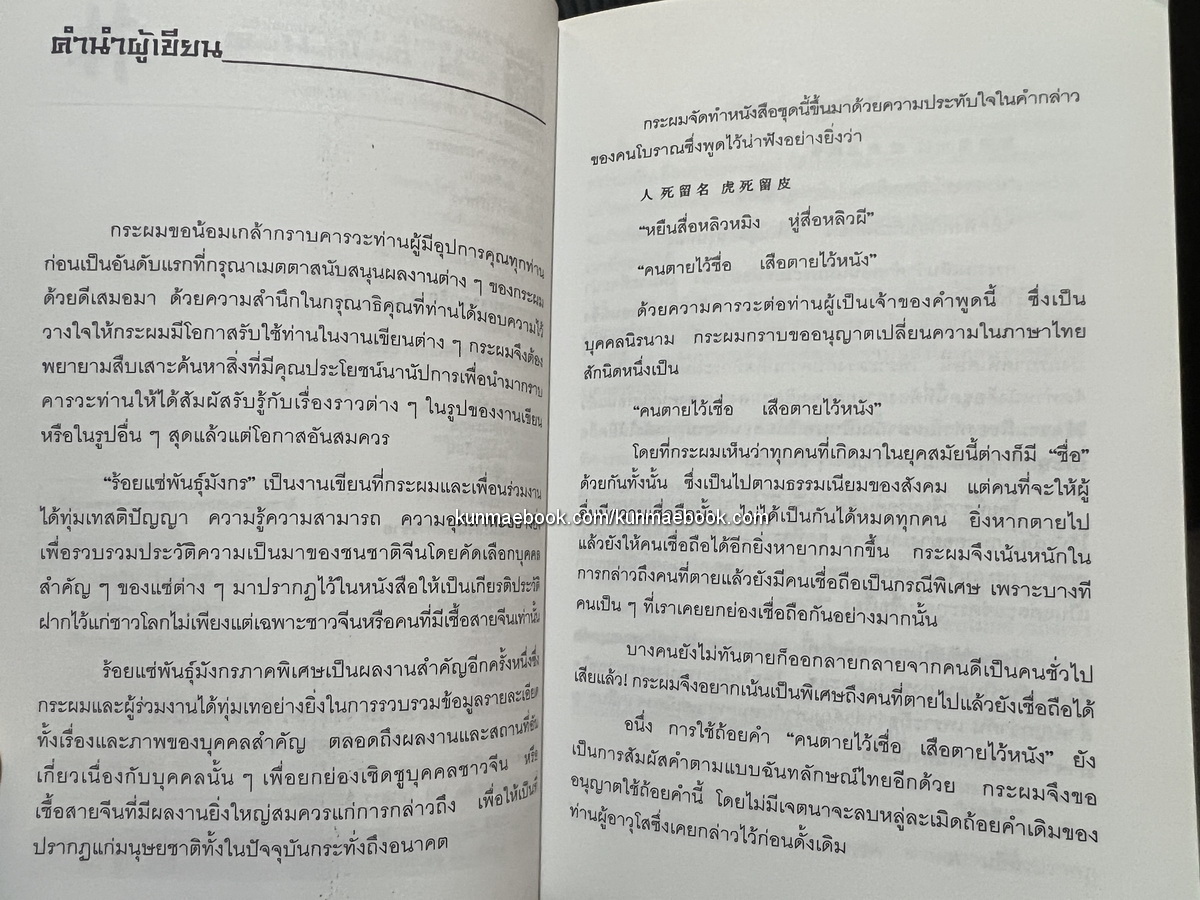 คำนำผู้เขียน
กระผมขอน้อมเกล้ากราบคารวะท่านผู้มีอุปการคุณทุกท่าน
ก่อนเป็นอันดับแรกที่กรุณาเมตตาสนับสนุนผลงานต่าง ๆ ของกระผม
ด้วยดีเสมอมา ด้วยความสำนึกในกรุณาธิคุณที่ท่านได้มอบความไว้
วางใจให้กระผมมีโอกาสรับใช้ท่านในงานเขียนต่าง ๆ กระผมจึงต้อง
พยายามสืบเสาะค้นหาสิ่งที่มีคุณประโยชน์นานัปการเพื่อนำมากราบ
คารวะท่านให้ได้สัมผัสรับรู้กับเรื่องราวต่าง ๆ ในรูปของงานเขียน
หรือในรูปอื่น ๆ สุดแล้วแต่โอกาสอันสมควร
"ร้อยแซ่พันธุ์มังกร" เป็นงานเขียนที่กระผมและเพื่อนร่วมงาน
ได้ทุ่มเทสติปัญญา ความรู้ความสามารถ
เพื่อรวบรวมประวัติความเป็นมาของชนชาติจีนโดยคัดเลือกบุคคล
สำคัญ ๆ ของแซ่ต่าง ๆ มาปรากฏไว้ในหนังสือให้เป็นเกียรติประวัติ
ฝากไว้แก่ชาวโลกไม่เพียงแต่เฉพาะชาวจีนหรือคนที่มีเชื้อสายจีนเท่านั้น
ร้อยแซ่พันธุ์มังกรภาคพิเศษเป็นผลงานสำคัญอีกครั้งหนึ่งซึ่ง
กระผมและผู้ร่วมงานได้ทุ่มเทอย่างยิ่งในการรวบรวมข้อมูลรายละเอียด
ทั้งเรื่องและภาพของบุคคลสำคัญ ตลอดถึงผลงานและสถานที่อัน
เกี่ยวเนื่องกับบุคคลนั้น ๆ เพื่อยกย่องเชิดชูบุคคลชาวจีน หรือ
เชื้อสายจีนที่มีผลงานยิ่งใหญ่สมควรแก่การกล่าวถึง เพื่อให้เป็นที่
ปรากฏแก่มนุษยชาติทั้งในปัจจุบันกระทั่งถึงอนาคต
กระผมจัดทำหนังสือชุดนี้ขึ้นมาด้วยความประทับใจในคำกล่าว
ของคนโบราณซึ่งพูดไว้น่าฟังอย่างยิ่งว่า
人死留名 虎死留皮
"หยืนสื่อหลิวหมิง หู่สื่อหลิวผี"
"คนตายไว้ชื่อ เสือตายไว้หนัง"
ด้วยความคารวะต่อท่านผู้เป็นเจ้าของคำพูดนี้ ซึ่งเป็น
บุคคลนิรนาม กระผมกราบขออนุญาตเปลี่ยนความในภาษาไทย
สักนิดหนึ่งเป็น
"คนตายไว้เชื่อ เสือตายไว้หนัง"
โดยที่กระผมเห็นว่าทุกคนที่เกิดมาในยุคสมัยนี้ต่างก็มี "ชื่อ"
ด้วยกันทั้งนั้น ซึ่งเป็นไปตามธรรมเนียมของสังคม แต่คนที่จะให้ผู้
kunmaebook.com/kunmaebook.com ได้เป็นกันได้หมดทุกคน ยิ่งหากตายไป
แล้วยังให้คนเชื่อถือได้อีกยิ่งหายากมากขึ้น กระผมจึงเน้นหนักใน
การกล่าวถึงคนที่ตายแล้วยังมีคนเชื่อถือเป็นกรณีพิเศษ เพราะบางที
คนเป็น ๆ ที่เราเคยยกย่องเชื่อถือกันอย่างมากนั้น
บางคนยังไม่ทันตายก็ออกลายกลายจากคนดีเป็นคนชั่วไป
เสียแล้ว! กระผมจึงอยากเน้นเป็นพิเศษถึงคนที่ตายไปแล้วยังเชื่อถือได้
อนึ่ง การใช้ถ้อยคำ "คนตายไว้เชื่อ เสือตายไว้หนัง" ยัง
เป็นการสัมผัสคำตามแบบฉันทลักษณ์ไทยอีกด้วย กระผมจึงขอ
อนุญาตใช้ถ้อยคำนี้ โดยไม่มีเจตนาจะลบหลู่ละเมิดถ้อยคำเดิมของ
ท่านผู้อาวุโสซึ่งเคยกล่าวไว้ก่อนดั้งเดิม